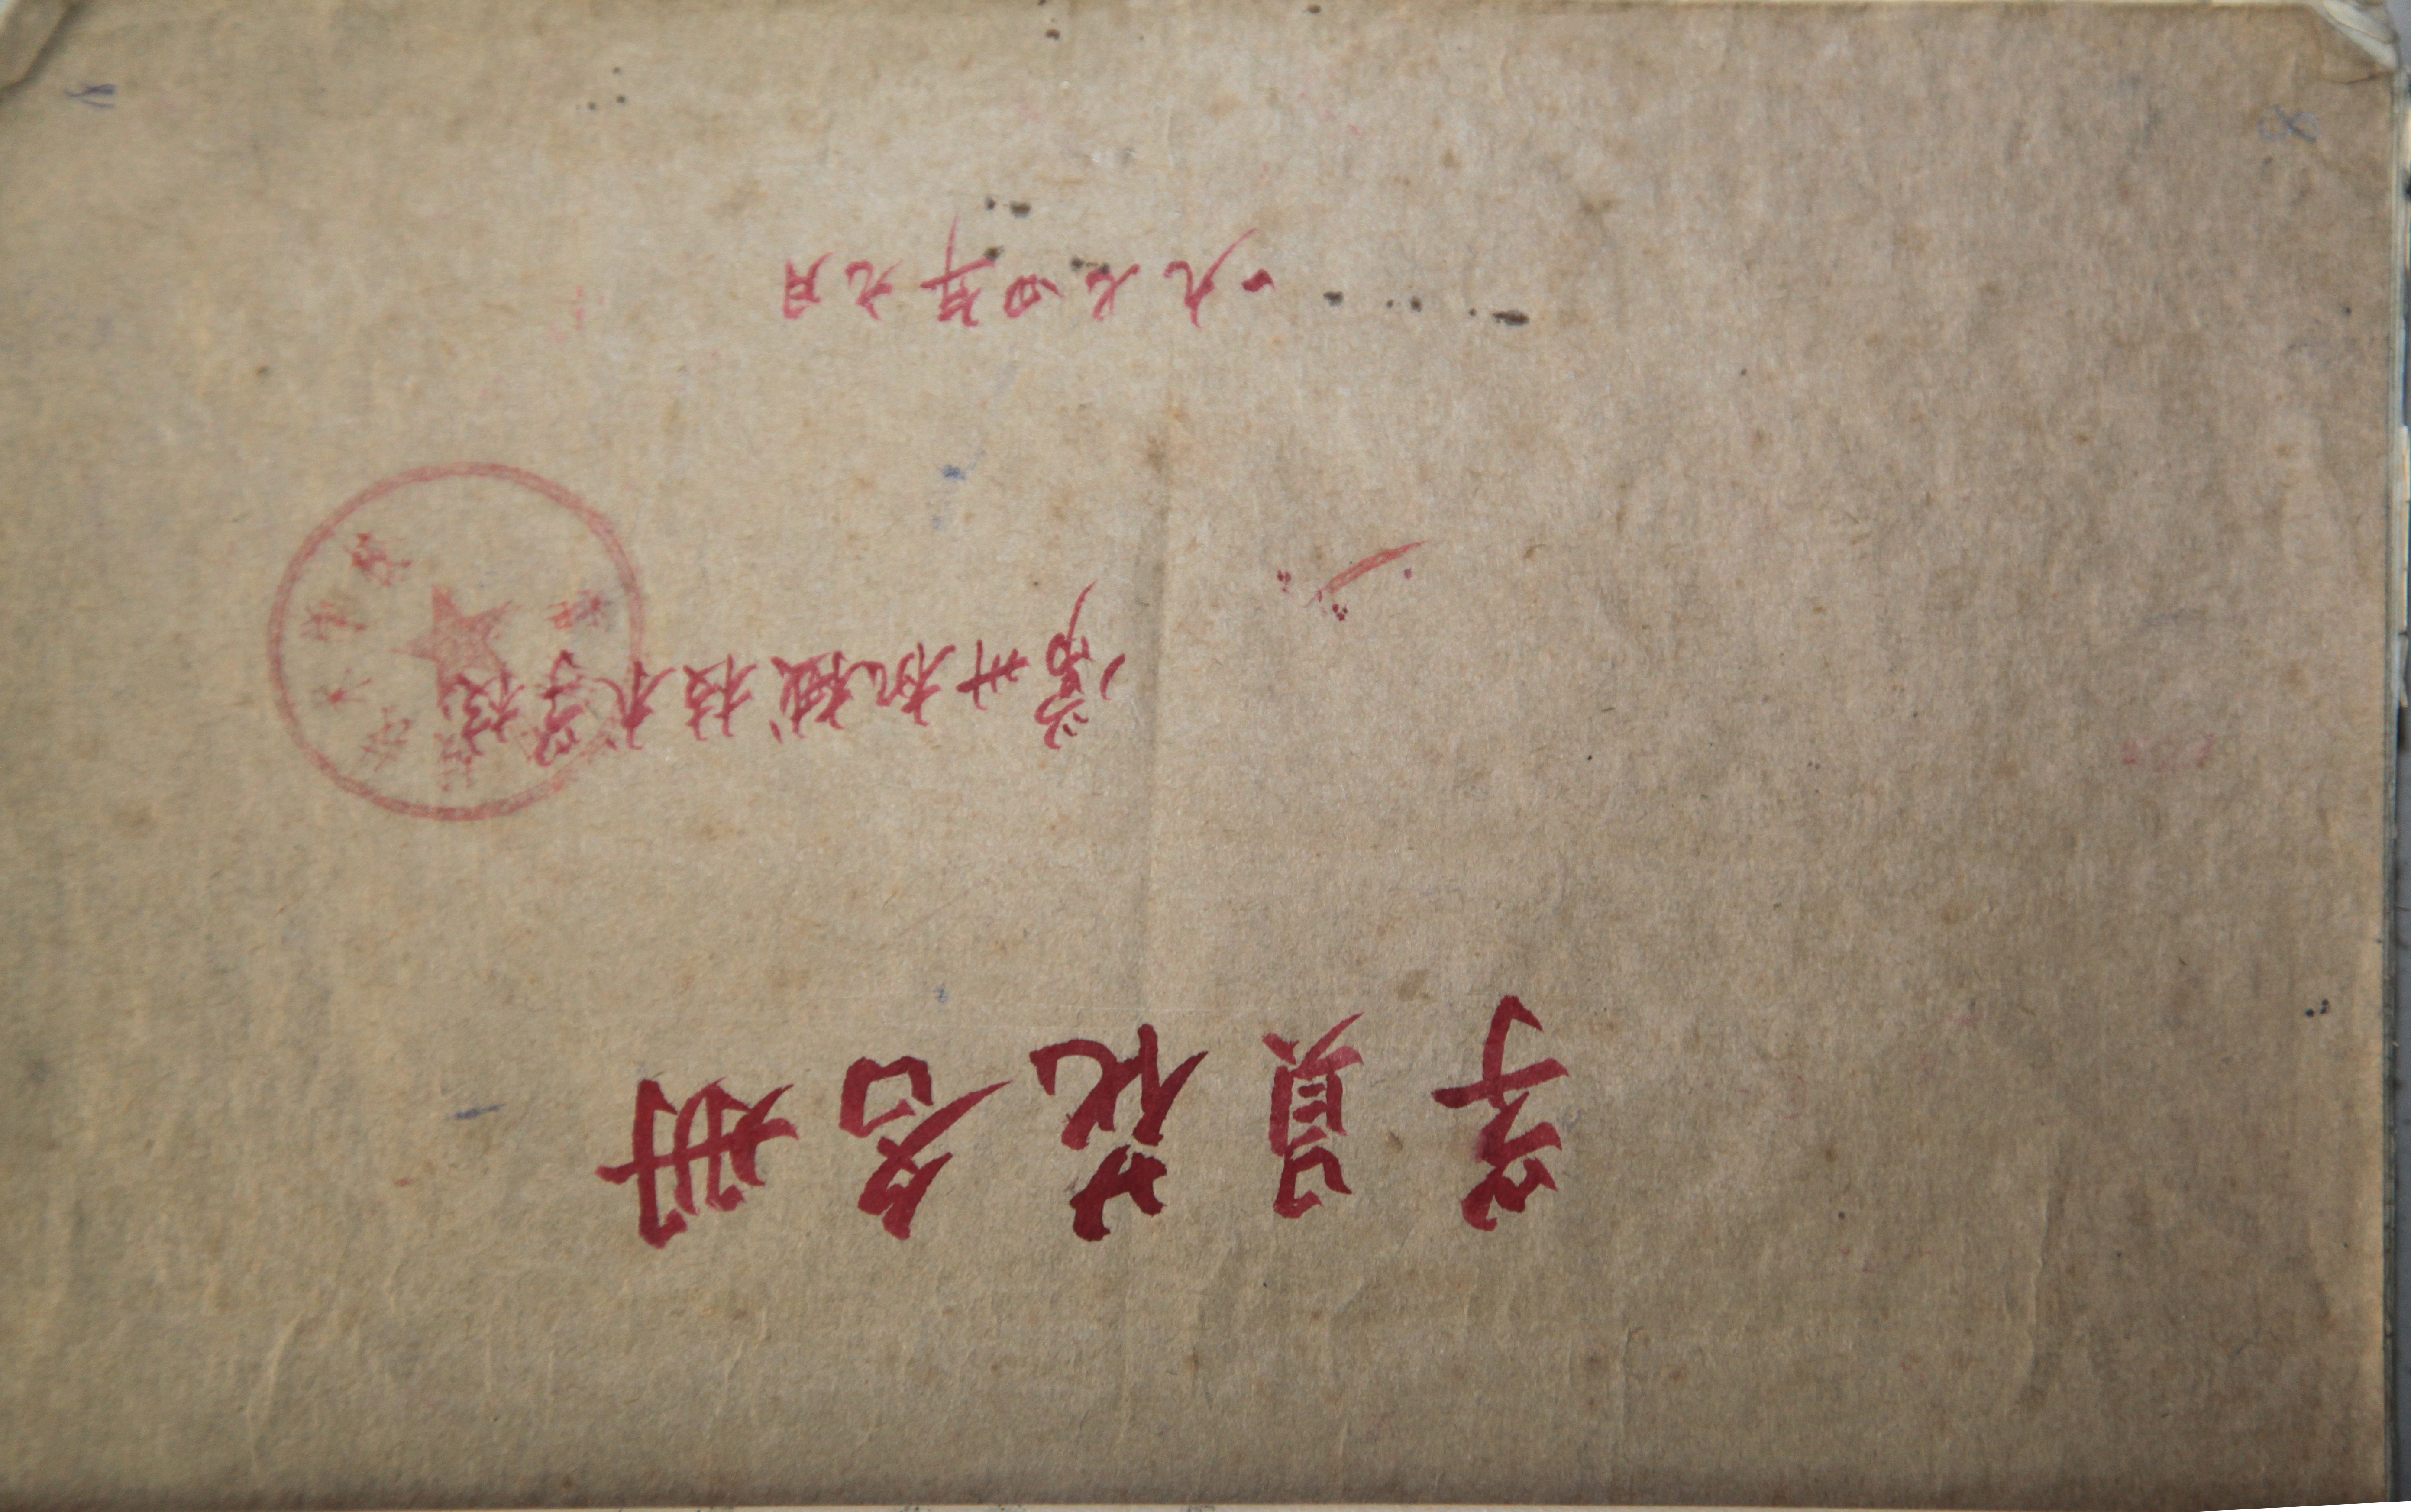 学员花名册
常州机械技术学校
一九七四年九月